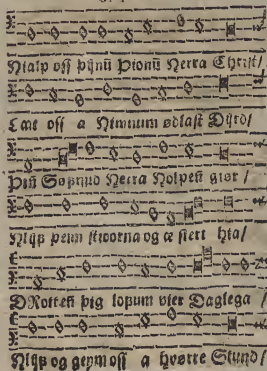 Hialp oss þijnū Þionū HErra Christ/
Lat oss a Himnum ødlast Dijrd/
Þijn Soknud HErra Holpen giør/
Hlijf þeim stoorna og æ fiert hia/
DRotteñ þig lofum vier Daglega/
Hlijf og geym oss a hvørre Stund/